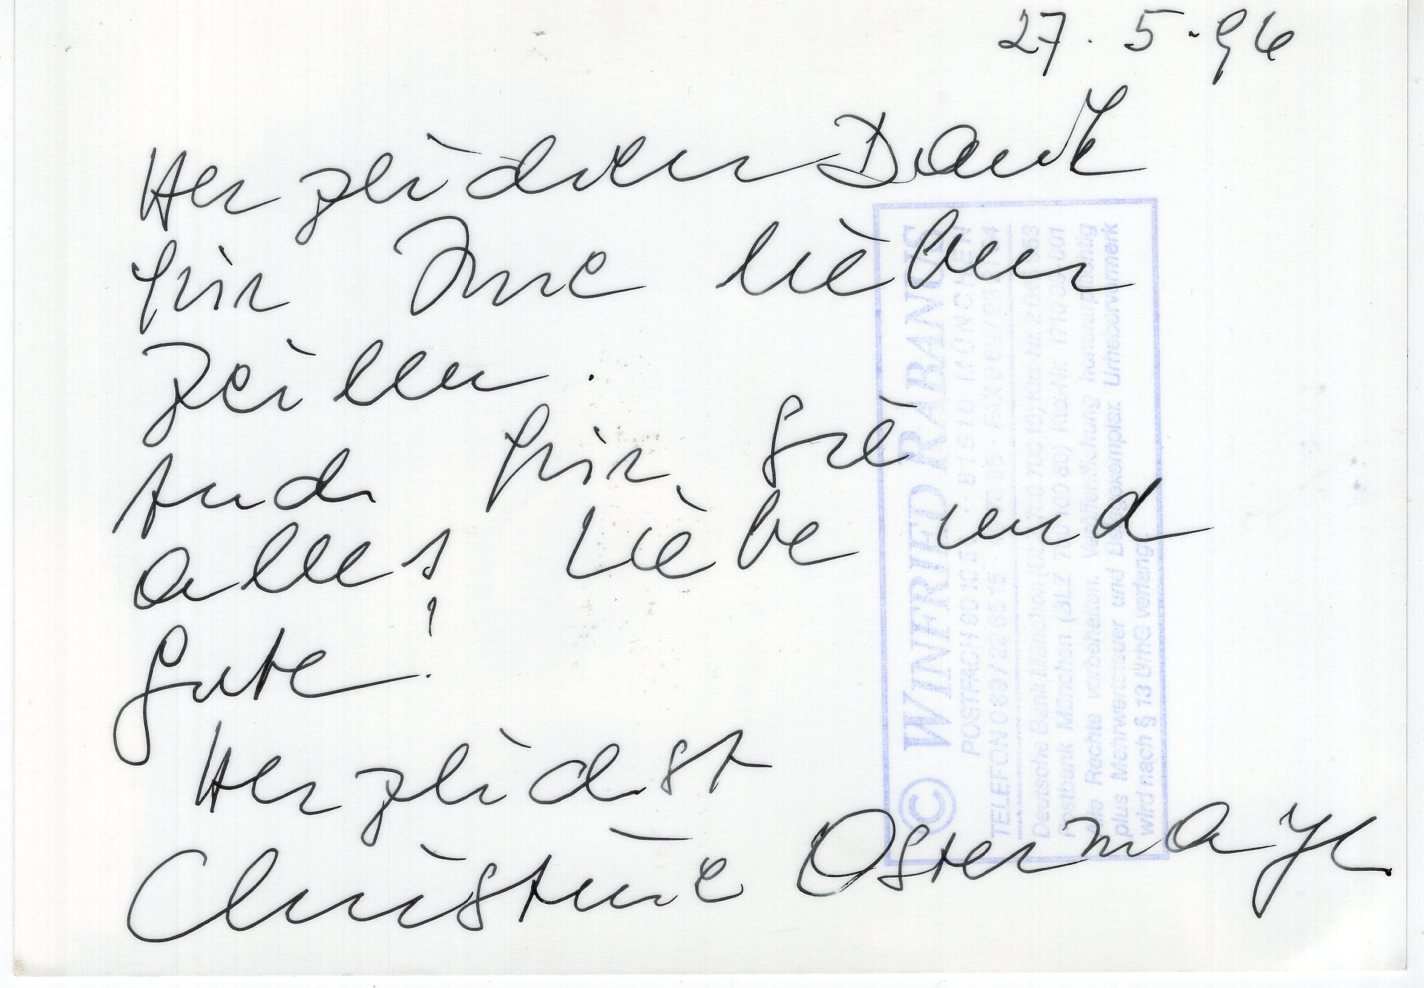 27.5.96
Herzlichen Dank
für Ihre lieben
Zeilen.
Auch für Sie
alles Liebe und
Gute!
Herzlichst
Christine Ostermayer
© WINFRIED RABANUS
POSTFACH 81510 MÜNCHEN
TELEFON 089/
Deutsche Bank München
Postbank München (BLZ
Alle Rechte vorbehalten. Veröffentlichung honorarpflichtig
plus Mehrwertsteuer und Belegexemplar. Urhebervermerk
wird nach § 13 UrhG verlangt